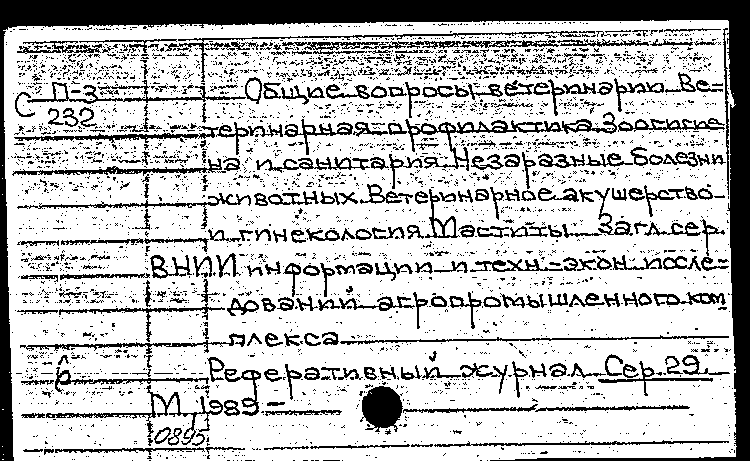 С П-3 Общие вопросы ветеринарии. Ве-
232
теринарная профилактика. Зоогигие
на и санитария. Незаразные болезни
животных. Ветеринарное акушерство
и гинекология. Маститы. Загл. сер.
ВНИИ информации и техн.-экон. иссле-
дований агропромышленного ком
плекса
р Реферативный журнал Сер. 29.
М., 1989 –
0895